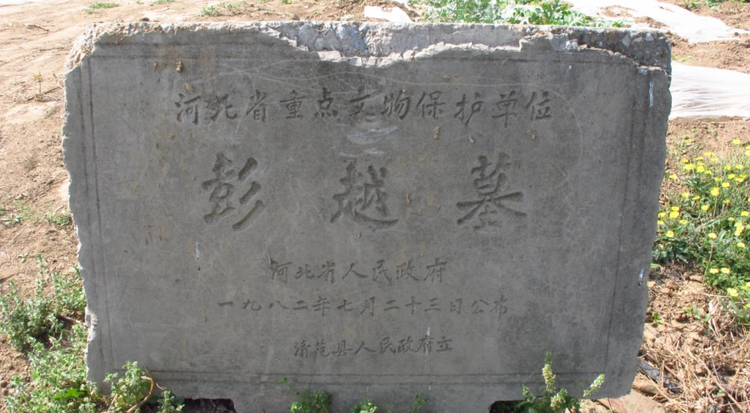 河北省重点文物保护单位
彭越墓
河北省人民政府
一九八二年七月二十三日公布
清苑县人民政府立